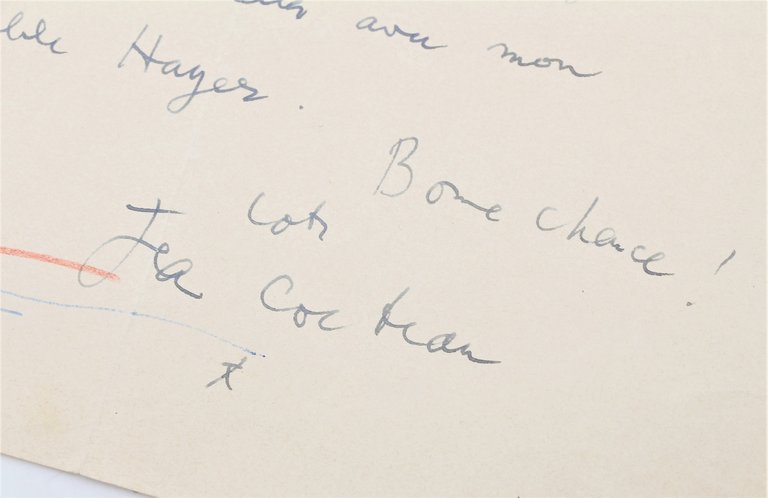 avec mon
Hayez.
Bonne chance!
votre
Jean Cocteau